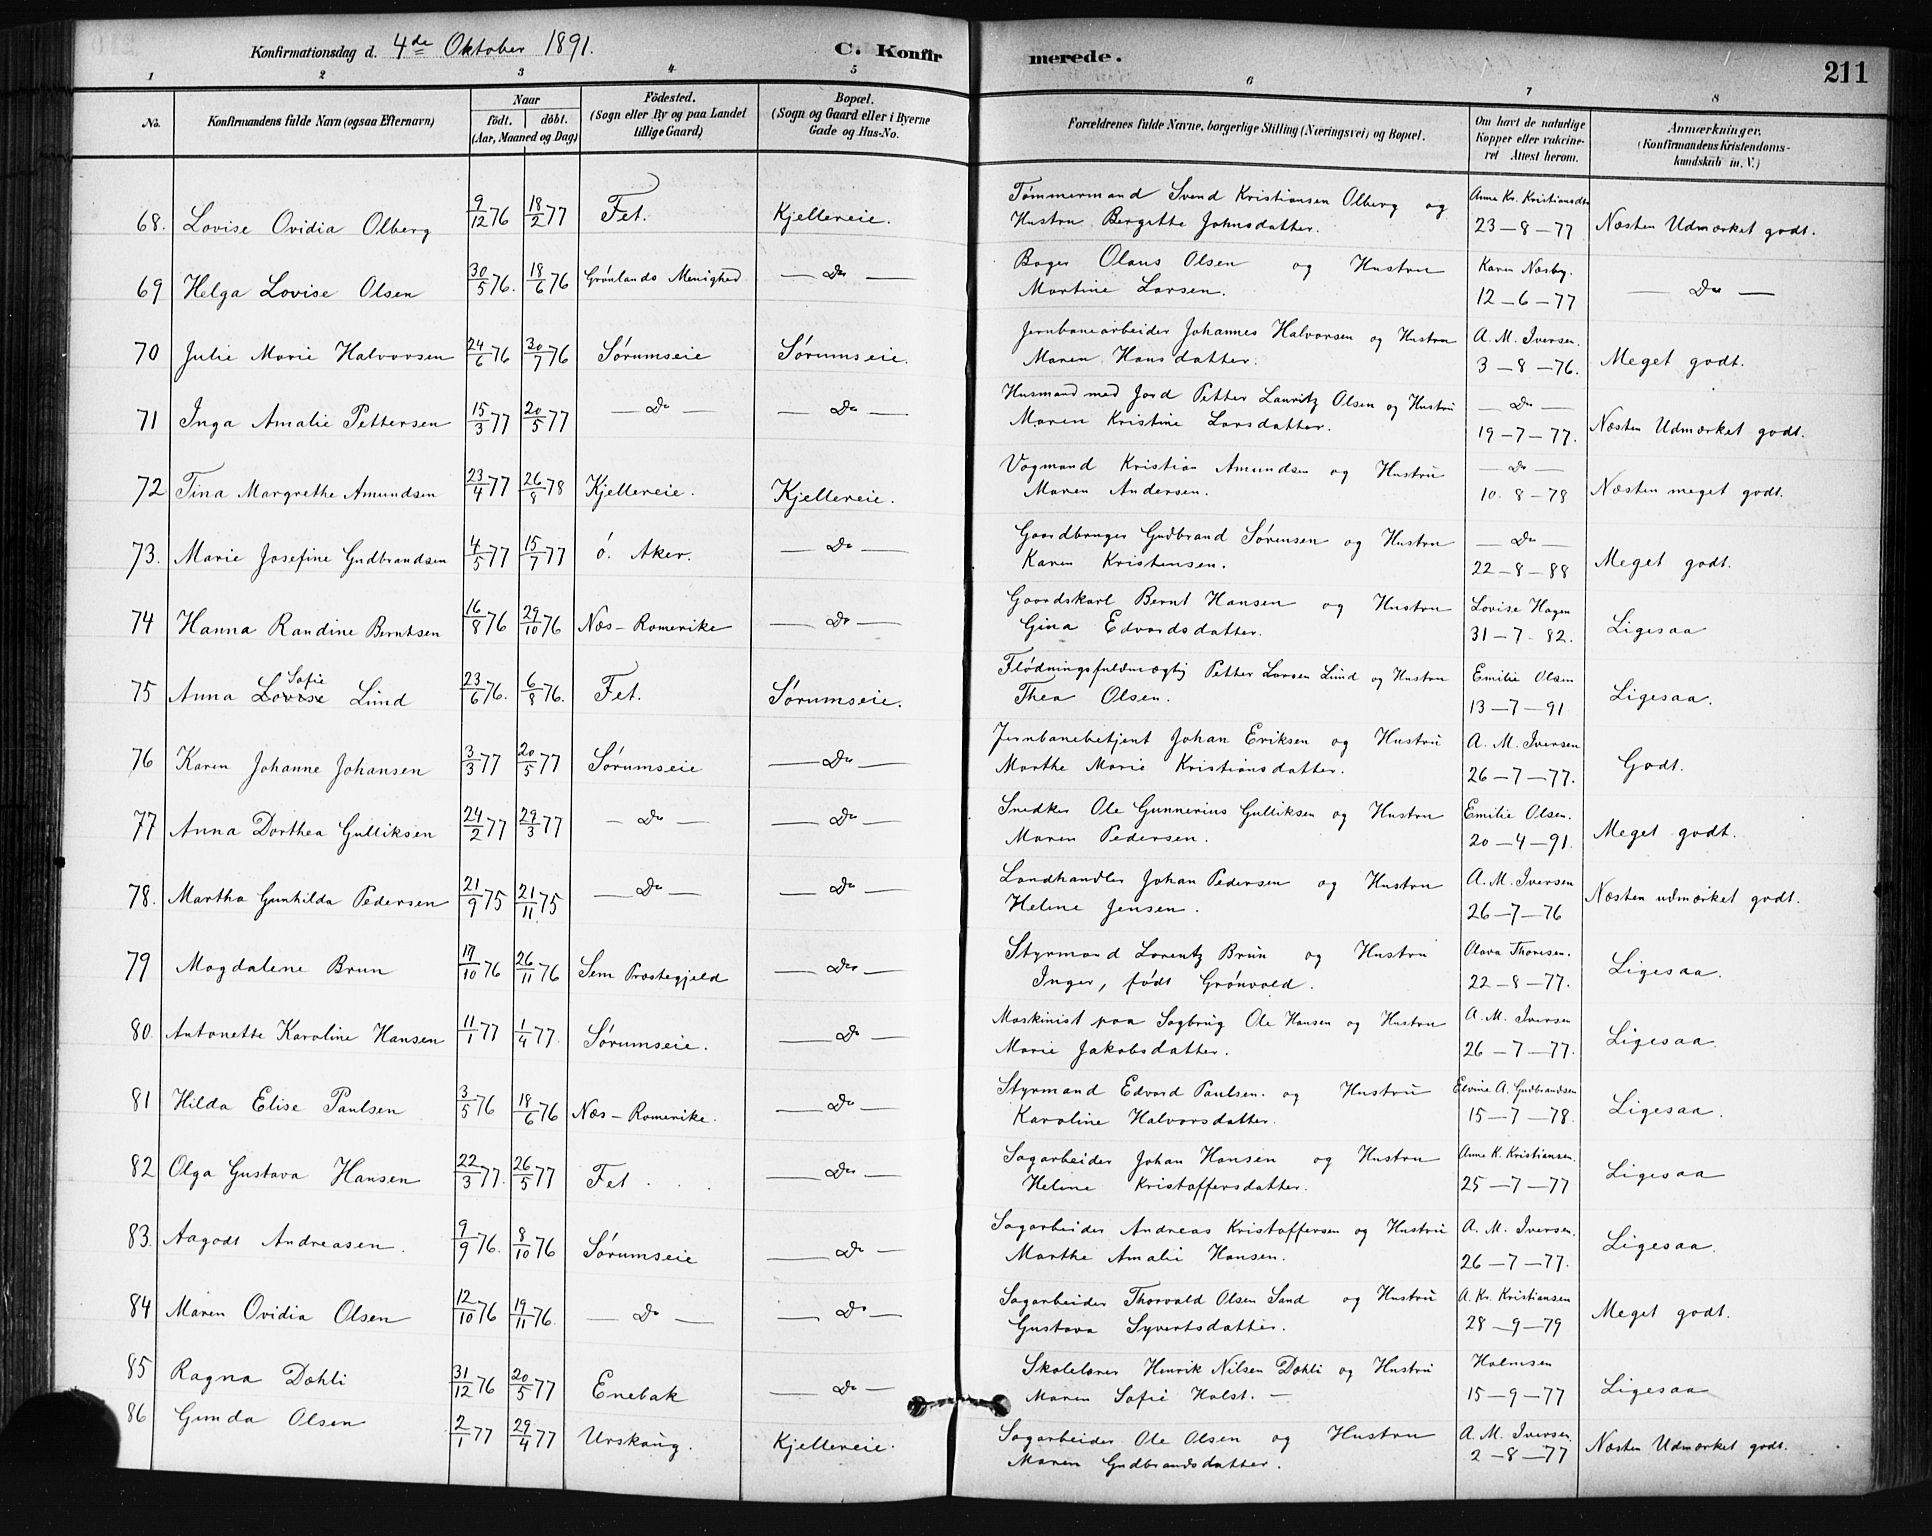 Konfirmationsdag d. 4de Oktober 1891.
C. Konfirmerede.
211
1 2 3 4 5 6 7 8
No. Konfirmandens fulde Navn (ogsaa Efternavn) Naar födt. döbt. (Aar, Maaned og Dag) Födested. (Sogn eller By og paa Landet tillige Gaard) Bopæl. (Sogn og Gaard eller i Byerne Gade og Hus-No. Forældrenes fulde Navne, borgerlige Stilling (Næringsvei) og Bopæl. Om havt de naturlige Kopper eller vakcineret Attest herom. Anmærkninger. (Konfirmandens Kristendomskundskab m. V.)
68. Lovise Ovidia Olberg 9/12 76 18/2 77 Fet. Kjellereie. Tømmermand Svend Kristiansen Olberg og Hustru Bergitte Johnsdatter. Anne Kr. Kristiansdtr 23-8-77 Næsten Udmærket godt.
69 Helga Lovise Olsen 30/5 76. 18/6 76 Grønlands Menighed — Do — Bager Olaus Olsen og Hustru Martine Larsen. Karen Næsby. 12-6-77 — Do —
70 Julie Marie Halvorsen 24/6 76 30/7 76 Sørumseie Sørumseie. Jernbanearbeider Johannes Halvorsen og Hustru Maren Hansdatter. A. M. Iversen. 3-8-76. Meget godt.
71 Inga Amalie Pettersen 15/3 77 20/5 77 — Do — — Do — Husmand med Jord Petter Lauritz Olsen og Hustru Maren Kristine Larsdatter. — Do — 19-7-77. Næsten Udmærket godt.
72 Tina Margrethe Amundsen 23/4 77 26/8 78 Kjellereie. Kjellereie. Vogmand Kristian Amundsen og Hustru Maren Andersen. — Do — 10.8-78 Næsten meget godt.
73. Marie Josefine Gudbrandsen 4/5 77 15/7 77 Ø. Aker. — Do — Gaardbruger Gudbrand Sørensen og Hustru Karen Kristensen. — Do — 22-8-88 Meget godt.
74 Hanna Randine Berntsen 16/8 76 29/10 76 Næs-Romerike — Do — Gaardskarl Bernt Hansen og Hustru Gina Edvardsdatter. Lovise Hagen 31-7-82. Ligesaa
75 Anna Lovise Sofie Lund 23/6 76. 6/8 76. Fet. Sørumseie. Flødningsfuldmægtig Petter Larsen Lund og Hustru Thea Olsen. Emilie Olsen 13-7-91 Ligesaa.
76 Karen Johanne Johansen 3/3 77 20/5 77 Sørumseie — Do — Jernbanebetjent Johan Eriksen og Hustru Marthe Marie Kristiansdatter. A. M. Iversen 26-7-77. Godt.
77 Anna Dorthea Gulliksen 24/2 77 29/3 77 — Do — — Do — Snedker Ole Gunnerius Gulliksen og Hustru Maren Pedersen. Emilie Olsen. 20-4-91. Meget godt.
78. Martha Gunhilda Pedersen 21/9 75 21/11 75 — Do — — Do — Landhandler Johan Pedersen og Hustru Helene Jensen. A. M. Iversen 26-7-76 Næsten udmærket godt.
79 Magdalene Brun 17/10 76 26/11 76 Sem Præstegjeld — Do — Styrmand Lorentz Brun og Hustru Inger, født Grønvold. Olava Thoresen. 22-8-77. Ligesaa.
80. Antonette Karoline Hansen 11/1 77 1/4 77. Sørumseie. — Do — Maskinist paa Sagbrug Ole Hansen og Hustru Marie Jakobsdatter. A. M. Iversen 26-7-77. Ligesaa.
81 Hilda Elise Paulsen 3/5 76 18/6 76 Næs-Romerike. — Do — Styrmand Edvard Paulsen. og Hustru Karoline Halvorsdatter. Elvine A. Gudbrandsen 15-7-78. Ligesaa.
82 Olga Gustava Hansen 22/3 77. 26/5 77 Fet. — Do — Sagarbeider Johan Hansen og Hustru Helene Kristoffersdatter. Anne K. Kristiansen. 25-7-77 Ligesaa
83. Aagodt Andreasen. 9/9 76. 8/10 76 Sørumseie — Do — Sagarbeider Andreas Kristoffersen og Hustru Marthe Amalie Hansen. A. M. Iversen. 26-7-77. Ligesaa.
84 Maren Ovidia Olsen 12/10 76 19/11 76. — Do — — Do — Sagarbeider Thorvald Olsen Sand og Hustru Gustava Syvertsdatter. A. Kr. Kristiansen 28-9-79 Meget godt.
85 Ragna Dæhli 31/12 76 20/5 77 Enebak — Do — Skolelærer Henrik Nilsen Dæhli og Hustru Maren Sofie Holst. Holmsen 15-9-77 Ligesaa
86 Gunda Olsen 2/1 77 29/4 77 Urskoug. Kjellereie. Sagarbeider Ole Olsen og Hustru Maren Gudbrandsdatter. A. M. Iversen. 2-8-77 Næsten Udmærket godt.